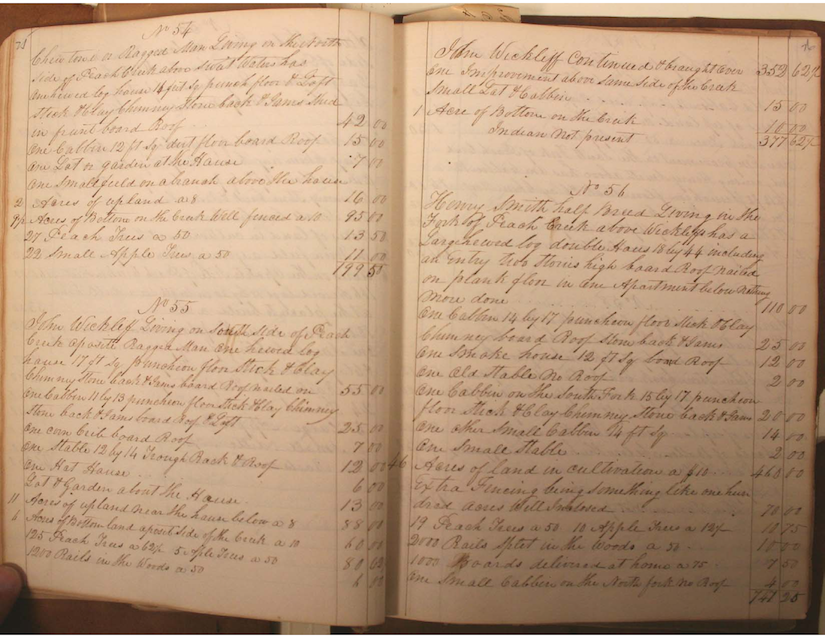 71
No 54
Chewtone or Ragged Man Living on the North
side of Peach Creek above Sweet Waters has
One hewed log house 16 ft Sq punch floor & Loft
Stick & Clay Chimney Stone back & Jams Shed
in front board Roof 42 00
One Cabbin 12 ft Sq dirt floor board Roof 15 00
One Lot or garden at the House 7 00
One Small field on a branch above the house
2 Acres of upland a 8 16 00
9½ Acres of Bottom on the Creek Well fenced a 10 95 00
27 Peach Trees a 50 13 50
22 Small Apple Trees a 50 11 00
199 50
No 55
John Wickliff Living on South side of Peach
Creek oposite Ragged Man One hewed log
house 17 ft Sq puncheon floor Stick & Clay
Chimney Stone back & Jams board Roof nailed on 55 00
One Cabbin 11 by 13 puncheon floor Stick & Clay Chimney
Stone back & Jams board Roof & Loft 25 00
One corn Crib board Roof 7 00
One Stable 12 by 14 Trough Rack & Roof 12 00
One Hot House 6 00
Lot & Garden about the House 13 00
11 Acres of upland near the house below a 8 88 00
6 Acres of Bottom land aposit side of the Creek a 10 60 00
125 Peach Trees a 62½ 5 Apple Trees a 50 80 62½
1200 Rails in the Woods a 50 6 00
John Wickliff Continued & braught Over 352 62½
One Improvement above same side of the Creek
Small Lot & Cabbin 15 00
1 Acre of Bottom on the Creek 10 00
Indian Not present 377 62½
No 56
Henry Smith half Breed Living in the
Fork of Peach Creek above Wickliffs has a
Large hewed log double Haus 18 by 44 including
an Entry two Stories high board Roof nailed
on plank floor in One Apartment below Nothing
More done 110 00
One Cabbin 14 by 17 puncheon floor Stick & Clay
Chimney board Roof Stone back & Jams 25 00
One Smoke house 12 ft Sq board Roof 12 00
One Old Stable No Roof 2 00
One Cabbin on the South Fork 15 by 17 puncheon
floor Stick & Clay Chimney Stone back & Jams 20 00
One other Small Cabbin 14 ft Sq 14 00
One Small Stable 2 00
46 Acres of land in cultivation a $10 460 00
Extra Fencing being something like one hun
dred acres Well Inclosed 70 00
19 Peach Trees a 50 10 Apple Trees a 12½ 10 75
2000 Rails Split in the Woods a 50 10 00
1000 Boards delivered at home a 75 7 50
One Small Cabben on the North fork No Roof 4 00
747 25